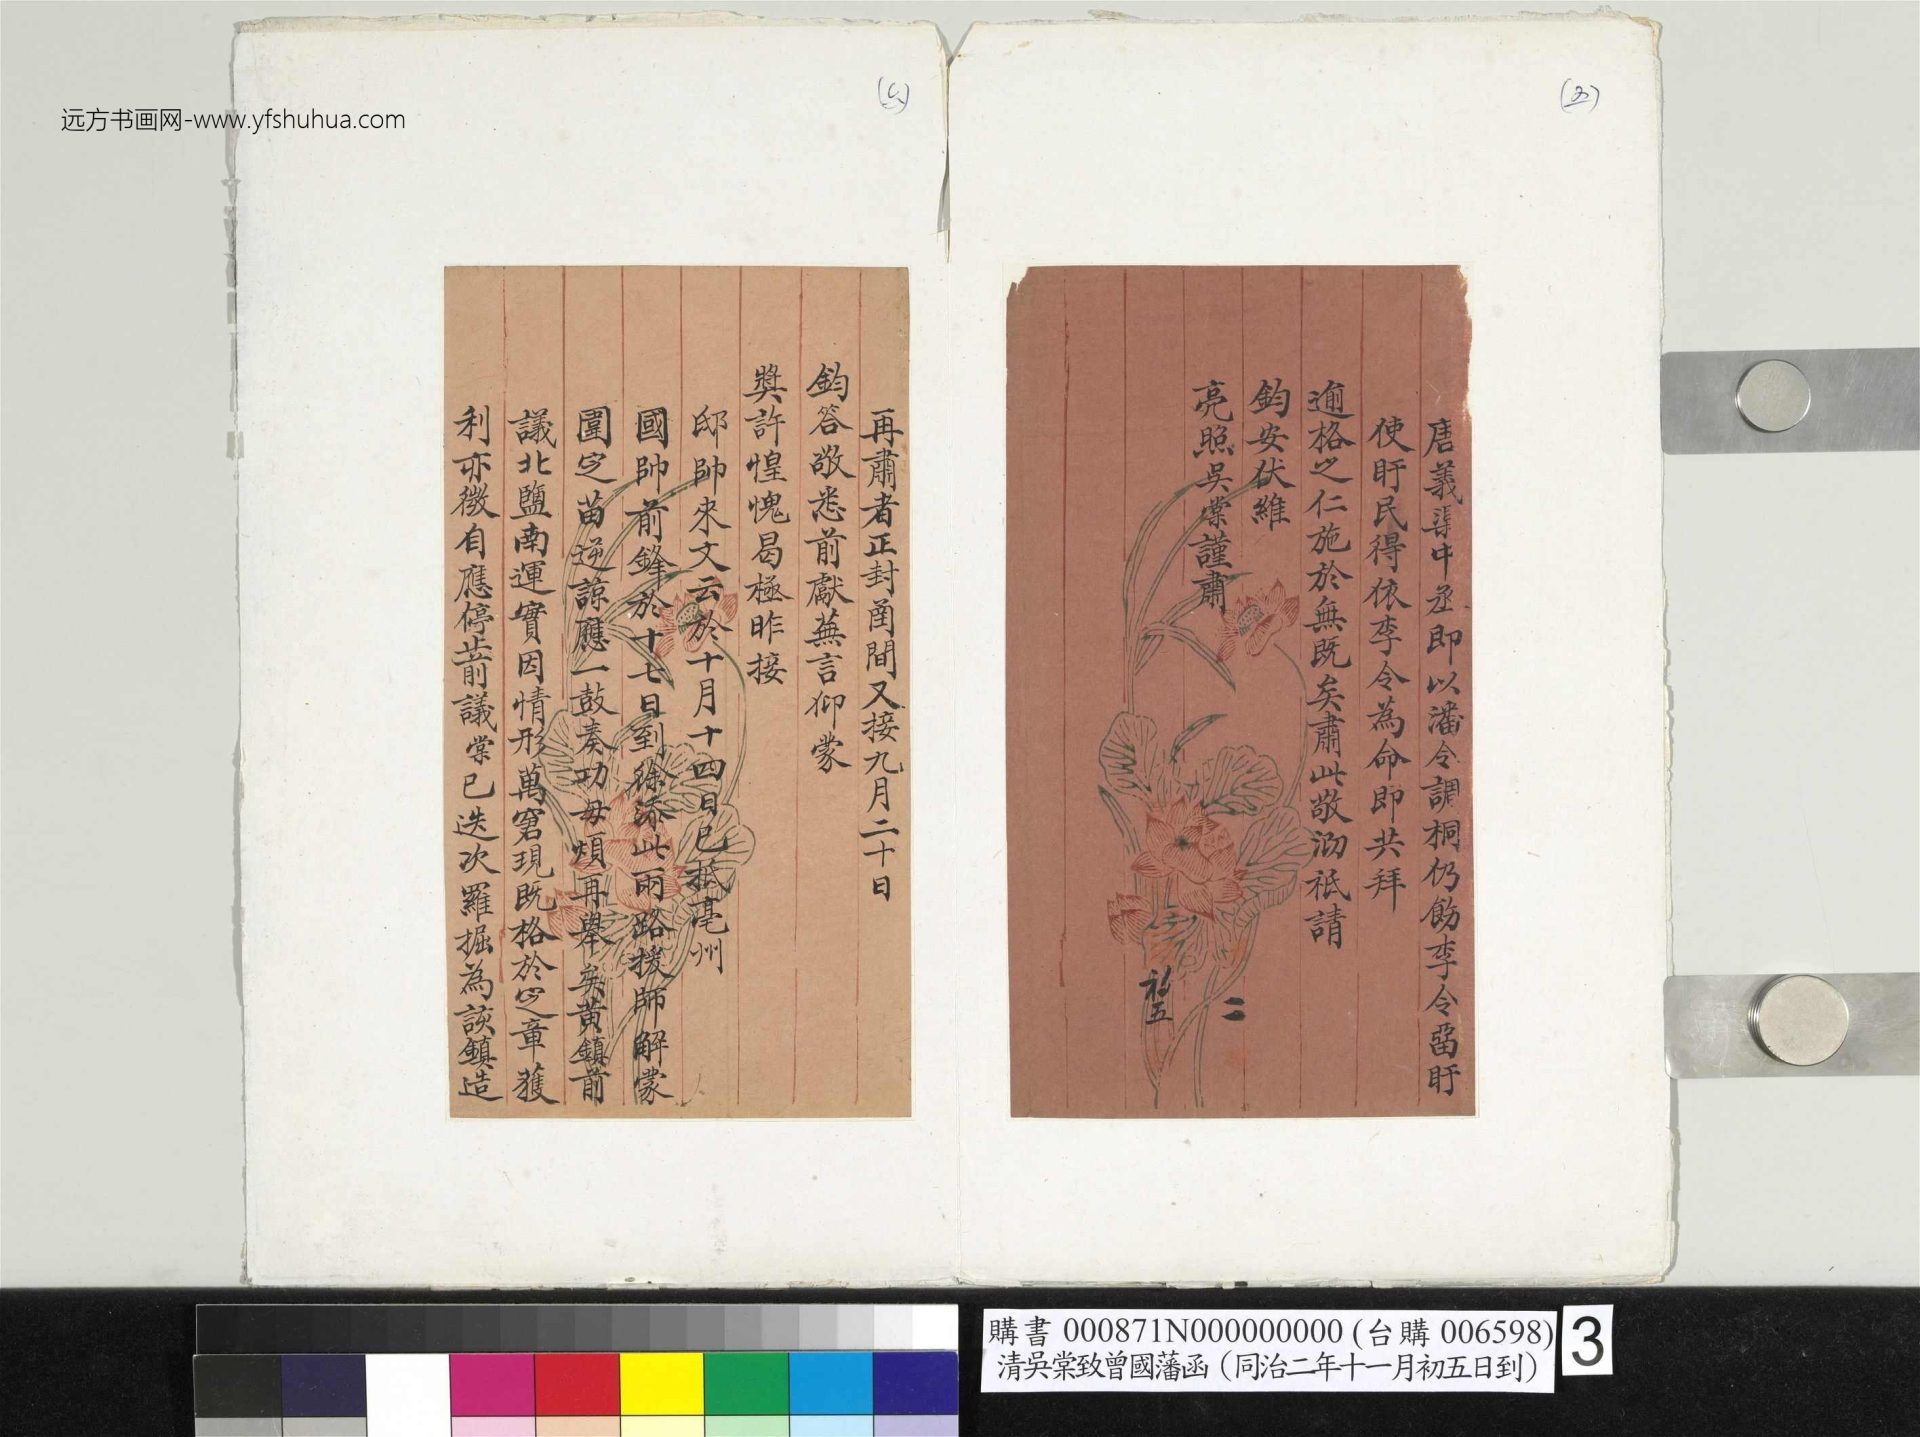 远方书画网-www.yfshuhua.com
(五)
唐義渠中丞即以潘令調桐仍飭李令留盱
使盱民得依李令為命即共拜
逾格之仁施於無既矣肅此敬泐祗請
鈞安伏維
亮照吳棠謹肅
二
初五
再肅者正封函間又接九月二十日
鈞答敬悉前獻蕪言仰蒙
獎許惶愧曷極昨接
邸帥來文云於十月十四日已抵亳州
國帥前鋒於十七日到徐添此兩路援師解蒙
圍之苗逆諒應一鼓奏功毋煩再舉矣黃鎮前
議北鹽南運實因情形萬窘現既格於定章獲
利亦微自應停止前議棠已迭次羅掘為該鎮造
購書 000871N000000000 (台購 006598)
清吳棠致曾國藩函（同治二年十一月初五日到）
3